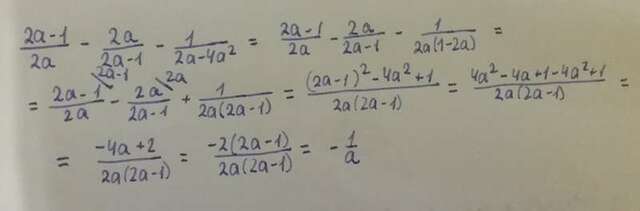 (2a-1)/(2a) - (2a)/(2a-1) - 1/(2a-4a²) = (2a-1)/(2a) - (2a)/(2a-1) - 1/(2a(1-2a)) =
= (2a-1)/(2a) \2a-1 - (2a)/(2a-1) \2a + 1/(2a(2a-1)) = ((2a-1)²-4a²+1)/(2a(2a-1)) = (4a²-4a+1-4a²+1)/(2a(2a-1)) =
= (-4a+2)/(2a(2a-1)) = (-2(2a-1))/(2a(2a-1)) = - 1/a